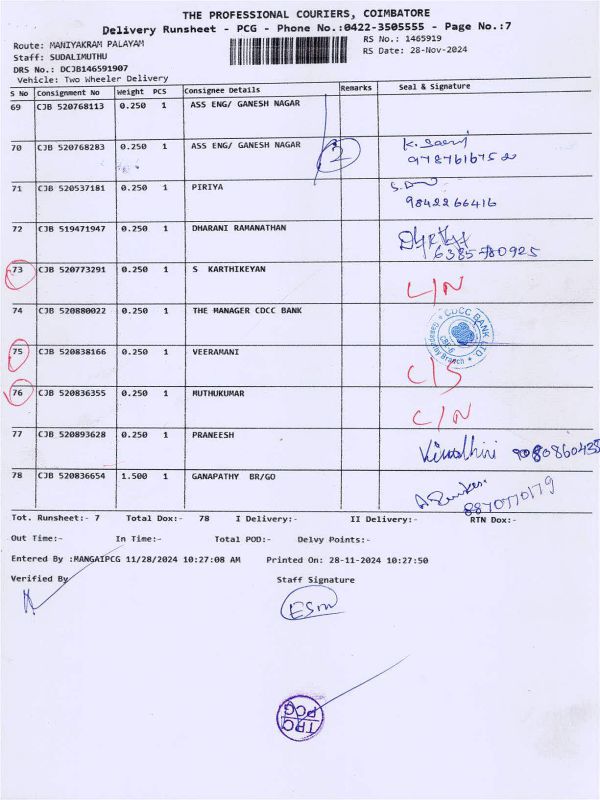 THE PROFESSIONAL COURIERS, COIMBATORE
Delivery Runsheet - PCG - Phone No.:0422-3505555 - Page No.:7
Route: MANIYAKRAM PALAYAM RS No.: 1465919
Staff: SUDALIMUTHU RS Date: 28-Nov-2024
DRS No.: DCJB146591907
Vehicle: Two Wheeler Delivery
S No Consignment No Weight PCS Consignee Details Remarks Seal & Signature
69 CJB 520768113 0.250 1 ASS ENG/ GANESH NAGAR
70 CJB 520768283 0.250 1 ASS ENG/ GANESH NAGAR 2
71 CJB 520537181 0.250 1 PIRIYA
9842266416
72 CJB 519471947 0.250 1 DHARANI RAMANATHAN
73 CJB 520773291 0.250 1 S KARTHIKEYAN
74 CJB 520880022 0.250 1 THE MANAGER CDCC BANK CDCC BANK LTD
75 CJB 520838166 0.250 1 VEERAMANI
76 CJB 520836355 0.250 1 MUTHUKUMAR
77 CJB 520893628 0.250 1 PRANEESH
9080860435
78 CJB 520836654 1.500 1 GANAPATHY BR/GO
8870770179
Tot. Runsheet:- 7 Total Dox:- 78 I Delivery:- II Delivery:- RTN Dox:-
Out Time:- In Time:- Total POD:- Delvy Points:-
Entered By :MANGAIPCG 11/28/2024 10:27:08 AM Printed On: 28-11-2024 10:27:50
Verified By Staff Signature
ESM
TPC
PCG